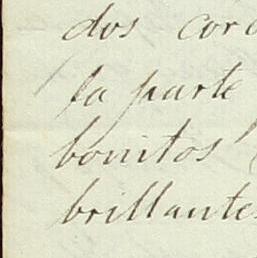 dos cor
la parte
bonitos
brillantes